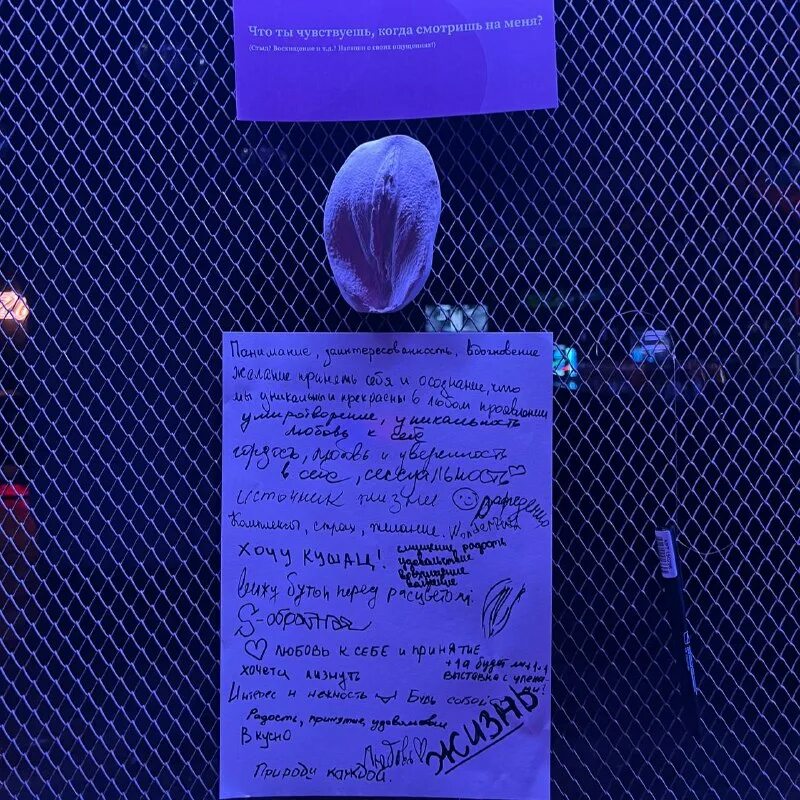 Что ты чувствуешь, когда смотришь на меня?
(Стыд? Восхищение и т.д.? Напиши о своих ощущениях!)
Панимание, заинтересованность, вдохновение
желание принять себя и осознание, что
мы уникальны и прекрасны в любом проявлении
умиротворение, уникальность
любовь к себе
гордость, любовь и уверенность
в себе, сексуальность♡
источник жизни
Комплексы, страх, желание.
ХОЧУ КУШАЦ!
смущение радость
удовольствие
возбуждение
вижу бутон перед расцветом.
S-образная
♡ ЛЮБОВЬ К СЕБЕ и ПРИНЯТИЕ
+1 а будет ли
выставка с
хочется лизнуть
Интерес и нежность Будь собой
Радость, принятие,
Вкусно
Любовь♡
ЖИЗНЬ
Природы каждой.